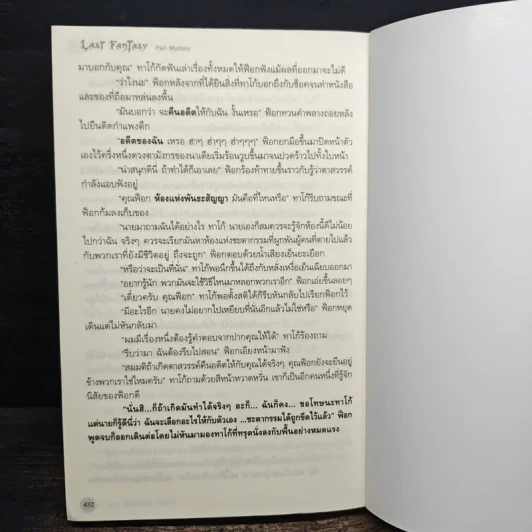 LAST FANTASY Part Mystery
มาบอกกับคุณ" ทาโก้กัดฟันเล่าเรื่องทั้งหมดให้ฟ็อกฟังแม้ผลที่ออกมาจะไม่ดี
"ว่าไงนะ" ฟ็อกหลังจากที่ได้ยินสิ่งที่ทาโก้บอกถึงกับช็อคจนทำหนังสือ
และของที่ถือมาหล่นลงพื้น
"มันบอกว่า จะคืนอดีตให้กับฉัน งั้นเหรอ" ฟ็อกทวนคำพลางถอยหลัง
ไปยืนติดกำแพงตึก
"อดีตของฉัน เหรอ ฮ่าๆ ฮ่าๆๆ ฮ่าๆๆๆ" ฟ็อกยกมือขึ้นมาปิดหน้าตัว
เองไว้ครึ่งหนึ่งดวงตามังกรของนาเดียเริ่มร้อนวูบขึ้นมาจนปวดร้าวไปทั้งใบหน้า
"น่าสนุกดีนี่ ถ้าทำได้ก็เอาเลย" ฟ็อกร้องท้าทายขึ้นราวกับรู้ว่าดาสวรรค์
กำลังแอบฟังอยู่
"คุณฟ็อก ห้องแห่งพันธะสัญญา มันคือที่ไหนหรือ" ทาโก้รีบถามขณะที่
ฟ็อกก้มลงเก็บของ
"นายมาถามฉันได้อย่างไร ทาโก้ นายเองก็สมควรจะรู้จักห้องนี้ดีไม่น้อย
ไปกว่าฉัน จริงๆ ควรจะเรียกมันหาห้องแห่งชะตากรรมที่ผูกพันผู้คนที่ตายไปแล้ว
กับพวกเราที่ยังมีชีวิตอยู่ ถึงจะถูก" ฟ็อกตอบด้วยน้ำเสียงเย็นยะเยือก
"หรือว่าจะเป็นที่นั่น" ทาโก้พอนึกขึ้นได้ถึงกับหลั่งเหงื่อเย็นเฉียบออกมา
"อยากรู้นัก พวกมันจะใช้วิธีไหนมาหลอกพวกเราอีก" ฟ็อกเอ่ยขึ้นลอยๆ
"เดี๋ยวครับ คุณฟ็อก" ทาโก้พอตั้งสติได้ก็รีบหันกลับไปเรียกฟ็อกไว้
"มีอะไรอีก นายคงไม่อยากไปเหยียบที่นั่นอีกแล้วไม่ใช่หรือ" ฟ็อกหยุด
เดินแต่ไม่หันกลับมา
"ผมมีเรื่องหนึ่งต้องรู้คำตอบจากปากคุณให้ได้" ทาโก้ร้องถาม
"รีบว่ามา ฉันต้องรีบไปสอน" ฟ็อกเอียงหน้ามาฟัง
"สมมติถ้าเกิดดาสวรรค์คืนอดีตให้กับคุณได้จริงๆ คุณฟ็อกยังจะยืนอยู่
ข้างพวกเราใช่ไหมครับ" ทาโก้ถามด้วยสีหน้าหวาดหวั่น เขาก็เป็นอีกคนหนึ่งที่รู้จัก
นิสัยของฟ็อกดี
"นั่นสิ...ก็ถ้าเกิดมันทำได้จริงๆ ละก็... ฉันก็คง... ขอโทษนะทาโก้
แต่นายก็รู้ดีนี่ว่า ฉันจะเลือกอะไรให้กับตัวเอง ...ชะตากรรมได้ถูกขีดไว้แล้ว" ฟ็อก
พูดจบก็ออกเดินต่อโดยไม่หันมามองทาโก้ที่ทรุดนั่งลงกับพื้นอย่างหมดแรง
432